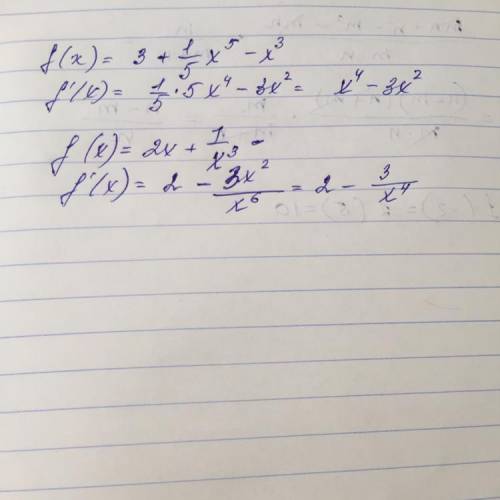 f(x) = 3 + 1/5 x⁵ - x³
f'(x) = 1/5 · 5x⁴ - 3x² = x⁴ - 3x²
f(x) = 2x + 1/x³ -
f'(x) = 2 - 3x²/x⁶ = 2 - 3/x⁴